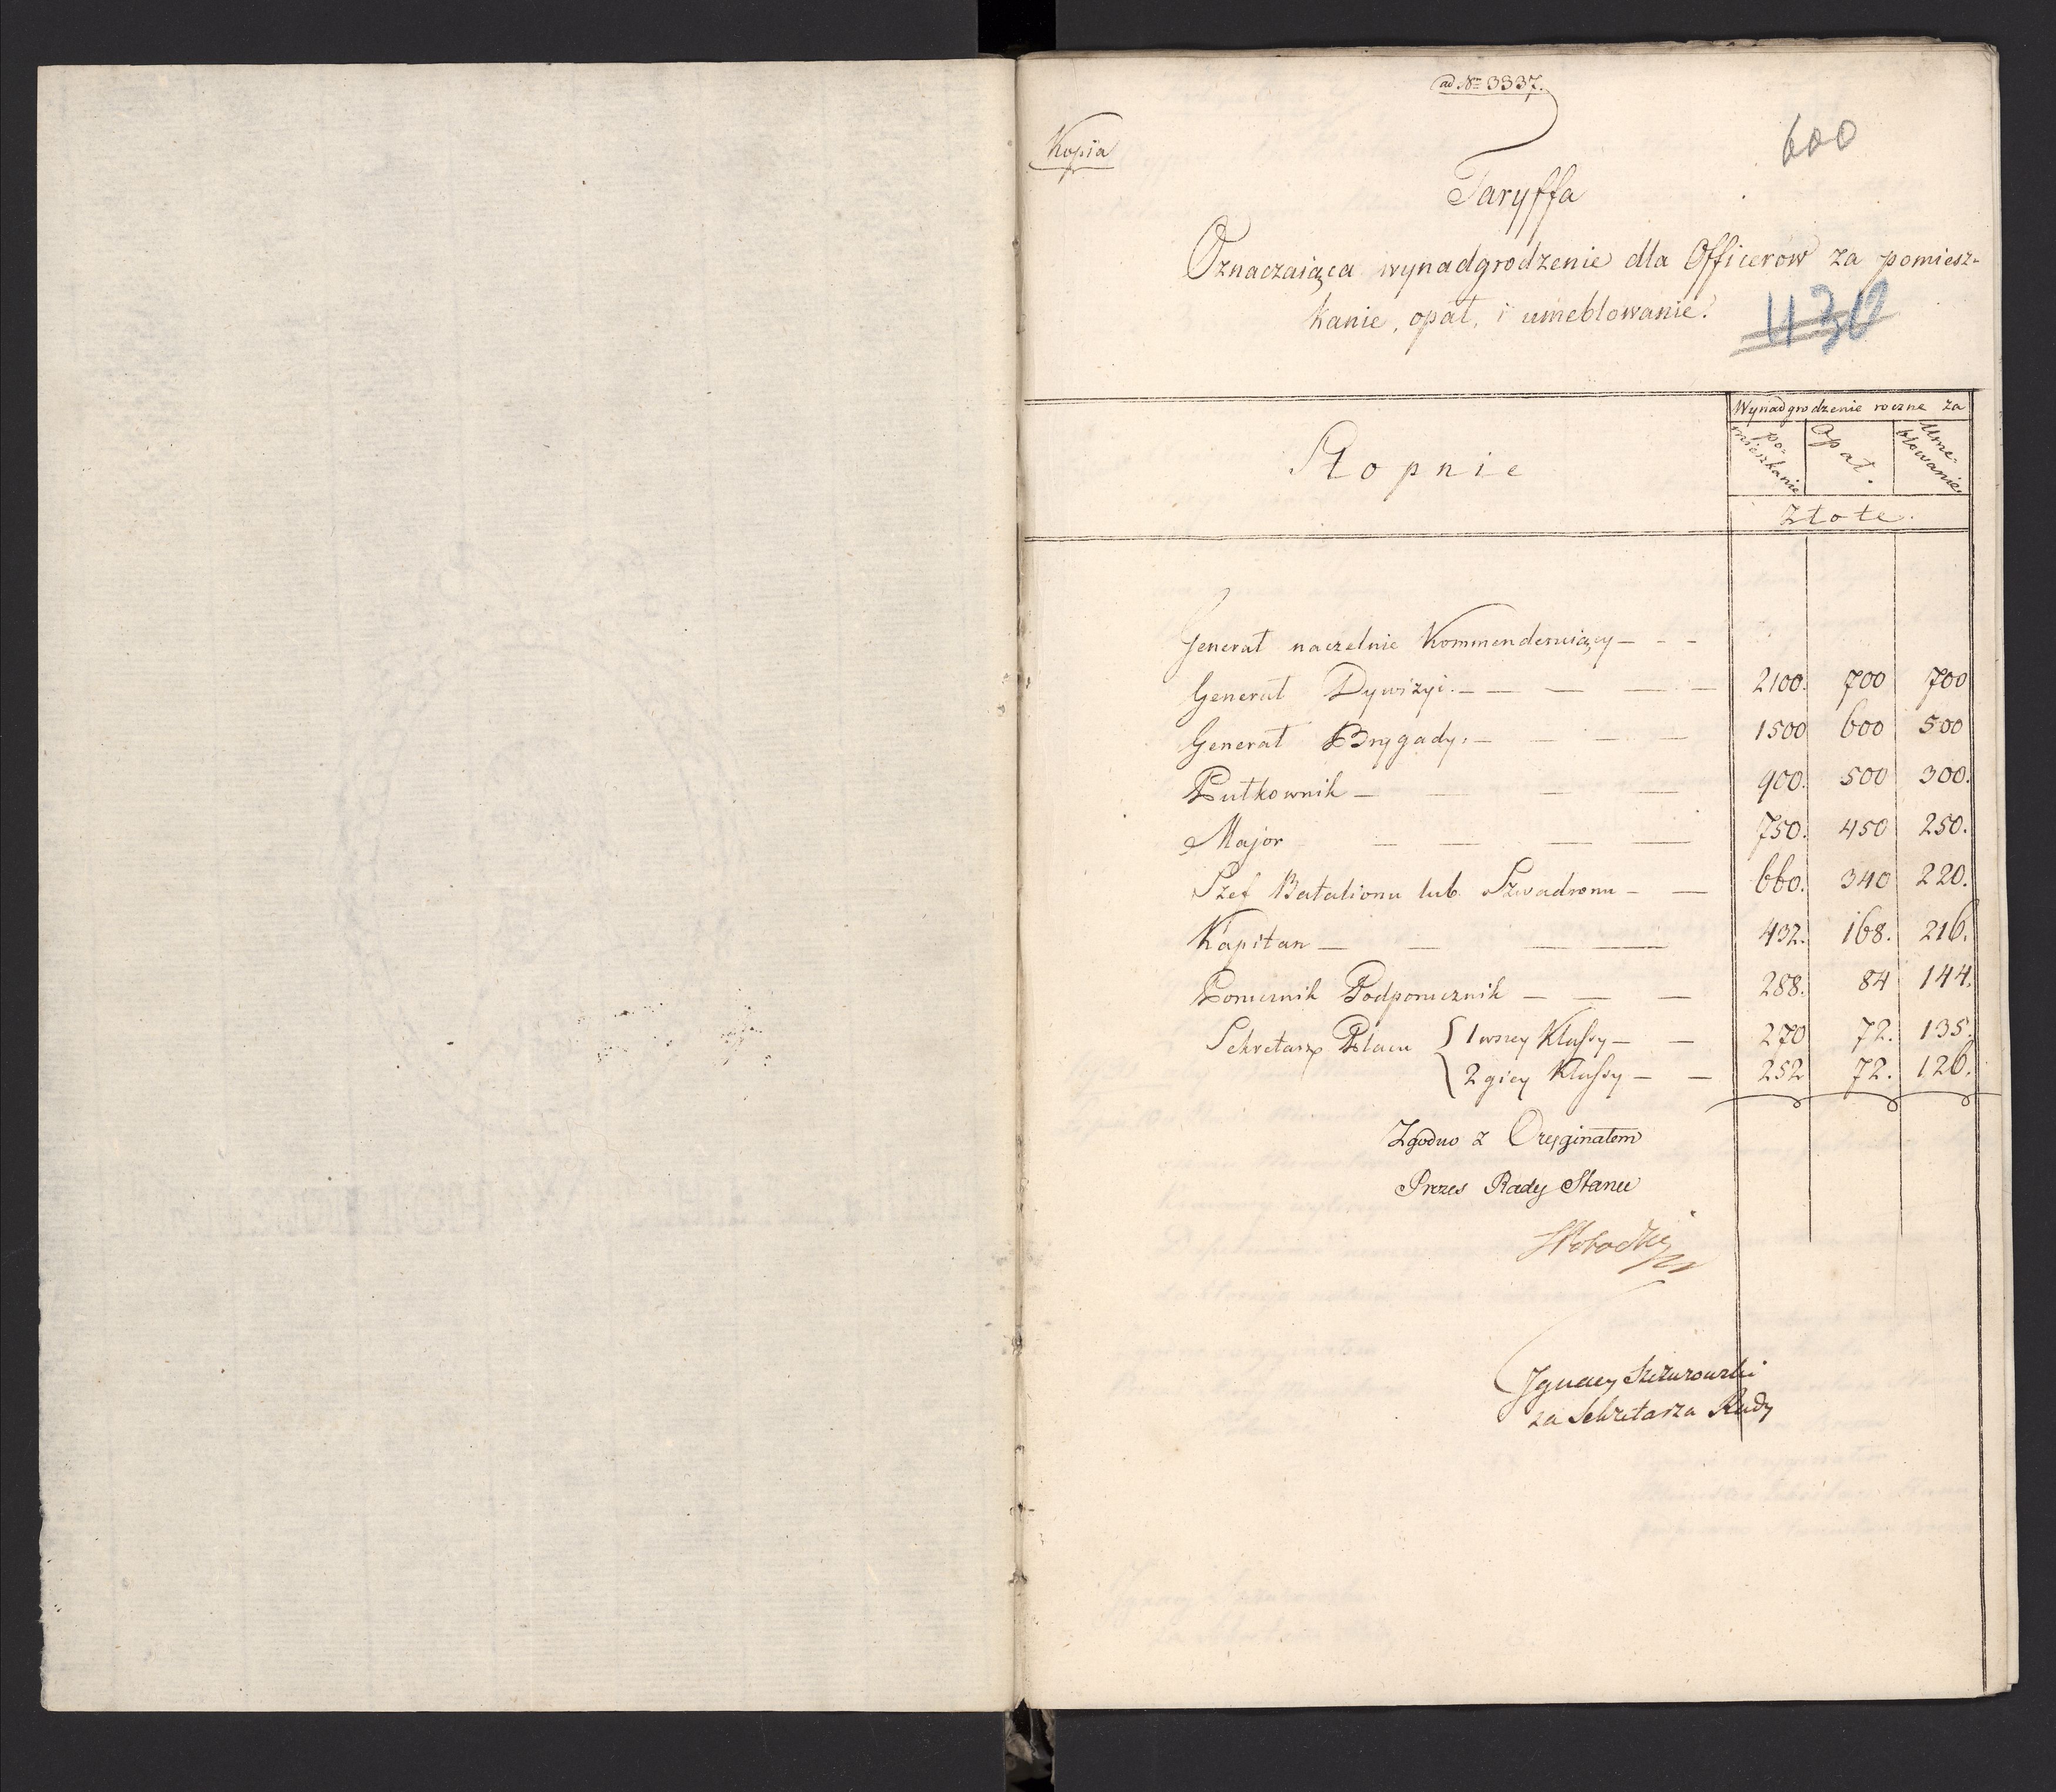 ad Nro 3337.
600
Kopia
Taryffa
Oznaczaiąca wynadgrodzenie dla Officerów za pomiesz-
kanie, opał, i umeblowanie.
1130
Wynadgrodzenie roczne za
Stopnie
po-
mieszkanie
Opał.
Ume-
blowanie.
Złote.
Generał naczelnie Kommenderuiący - - -
Generał Dywizyi. — — — — — 2100. 700 700
Generał Brygady. — — — — 1500 600 500
Pułkownik — — — — 900. 500 300.
Major — — — — 750. 450 250.
Szef Batalionu lub Szwadronu — — 660. 340 220.
Kapitan — — — — 432. 168. 216.
Porucznik Podporucznik — — — 288. 84 144.
Sekretarz Placu { 1wszey Klassy — — 270 72. 135.
2giey Klassy — — 252 72. 126.
Zgodno z Oryginałem
Prezes Rady Stanu
Ignacy Szczurowski
za Sekretarza Rady